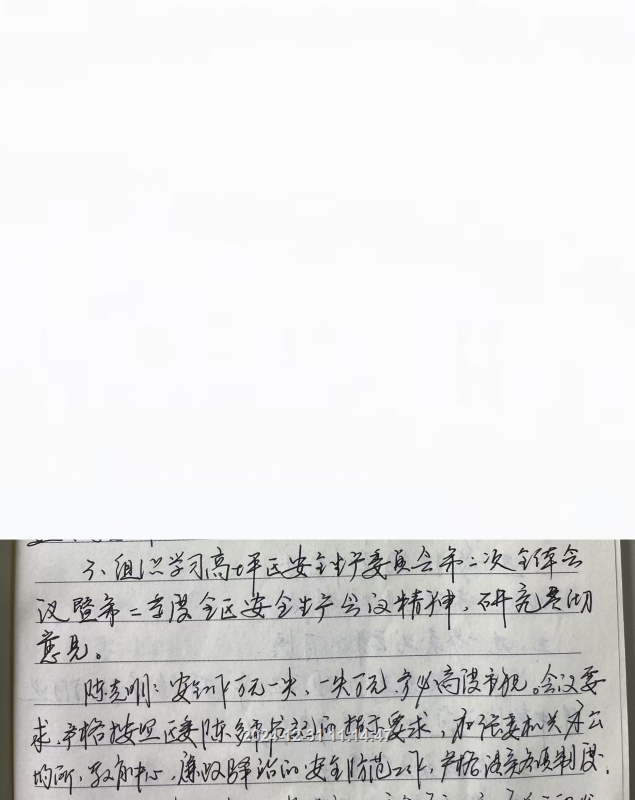 3、组织学习高坪区安全生产委员会第二次全体会
议暨第二季度全区安全生产会议精神，研究贯彻
意见。
陈克明：安全工作万无一失、一失万无，务必高度重视。会议要
求，严格按照区委陈 书记的指示要求，加强委机关办公
场所、教育中心、廉政驿站的安全防范工作，严格落实各项制度，